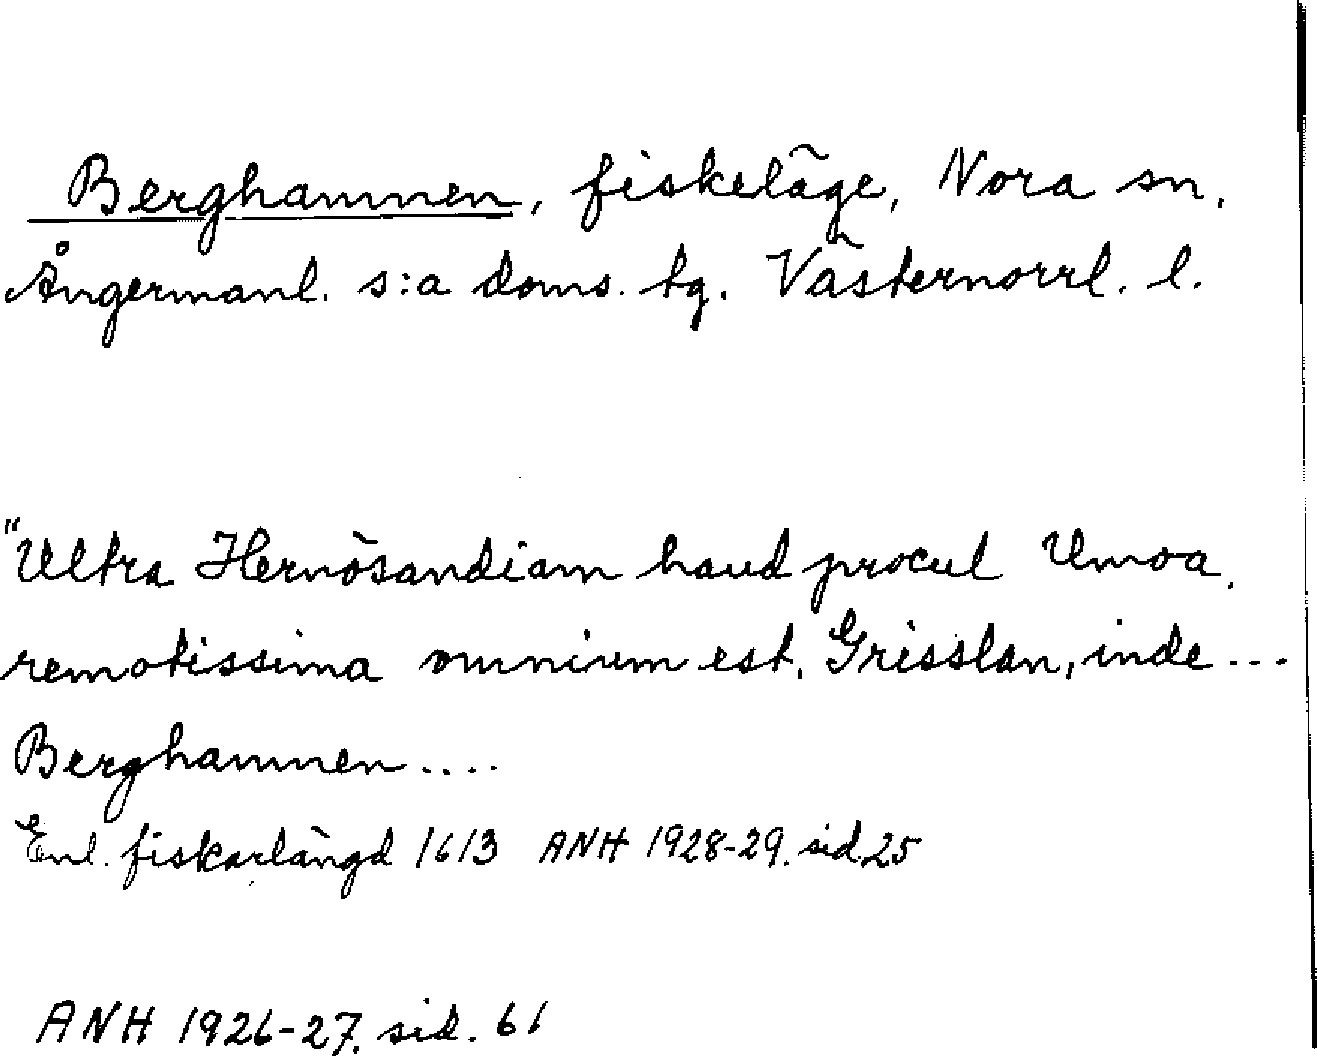 Berghamnen, fiskeläge, Nora sn,
Ångermanl. s:a doms. tg. Västernorrl. l.
"Ultra Hernösandiam haud procul Umoa,
remotissima omnium est, Grisslan, inde ...
Berghamnen ....
Enl. fiskarlängd 1613 ANH 1928-29. sid 25
ANH 1926-27. sid. 61